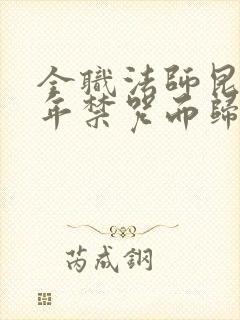 全職法師昆
年禁咒而歸
芮成鋼